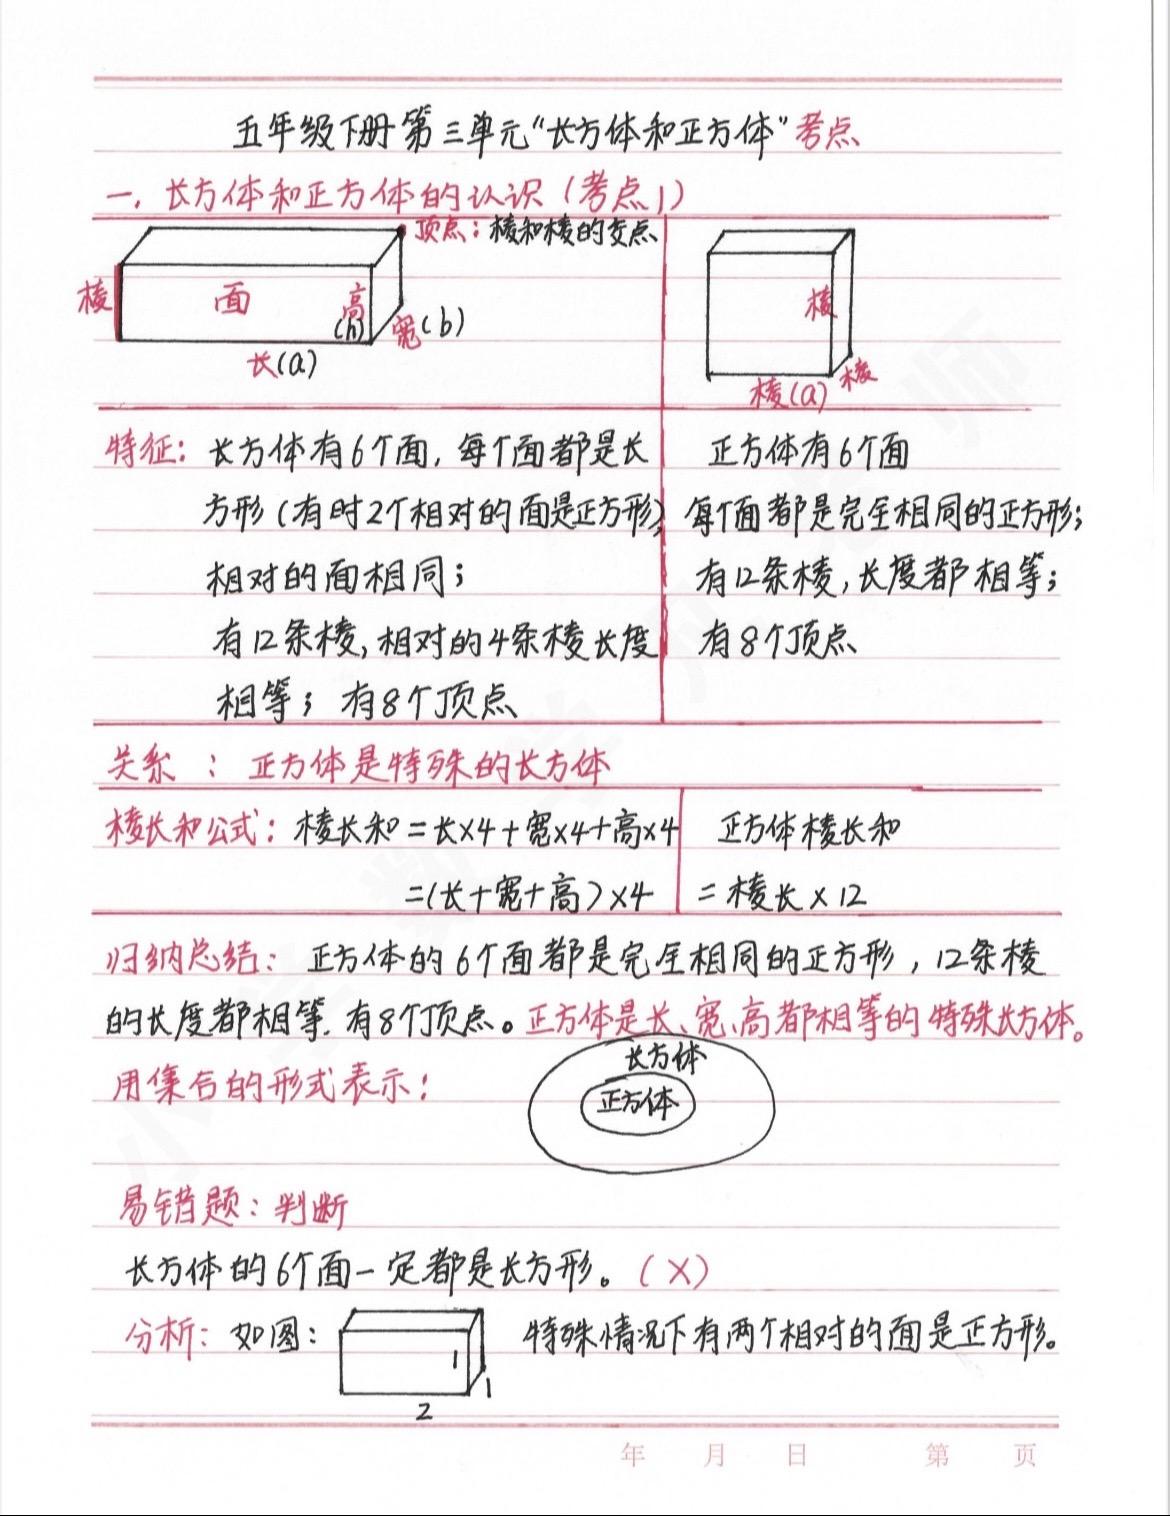 五年级下册第三单元“长方体和正方体”考点
一．长方体和正方体的认识（考点1）
顶点：棱和棱的交点
棱 面 高(h) 宽(b)
长(a)
棱
棱(a) 棱
特征：长方体有6个面，每个面都是长
方形（有时2个相对的面是正方形），
相对的面相同；
有12条棱，相对的4条棱长度
相等；有8个顶点
正方体有6个面
每个面都是完全相同的正方形；
有12条棱，长度都相等；
有8个顶点
关系：正方体是特殊的长方体
棱长和公式：棱长和=长×4+宽×4+高×4
=（长+宽+高）×4
正方体棱长和
=棱长×12
归纳总结：正方体的6个面都是完全相同的正方形，12条棱
的长度都相等．有8个顶点。正方体是长、宽、高都相等的特殊长方体。
用集合的形式表示：
长方体
正方体
易错题：判断
长方体的6个面一定都是长方形。（×）
分析：如图： 特殊情况下有两个相对的面是正方形。
1
1
2
年 月 日 第 页
小学数学
师